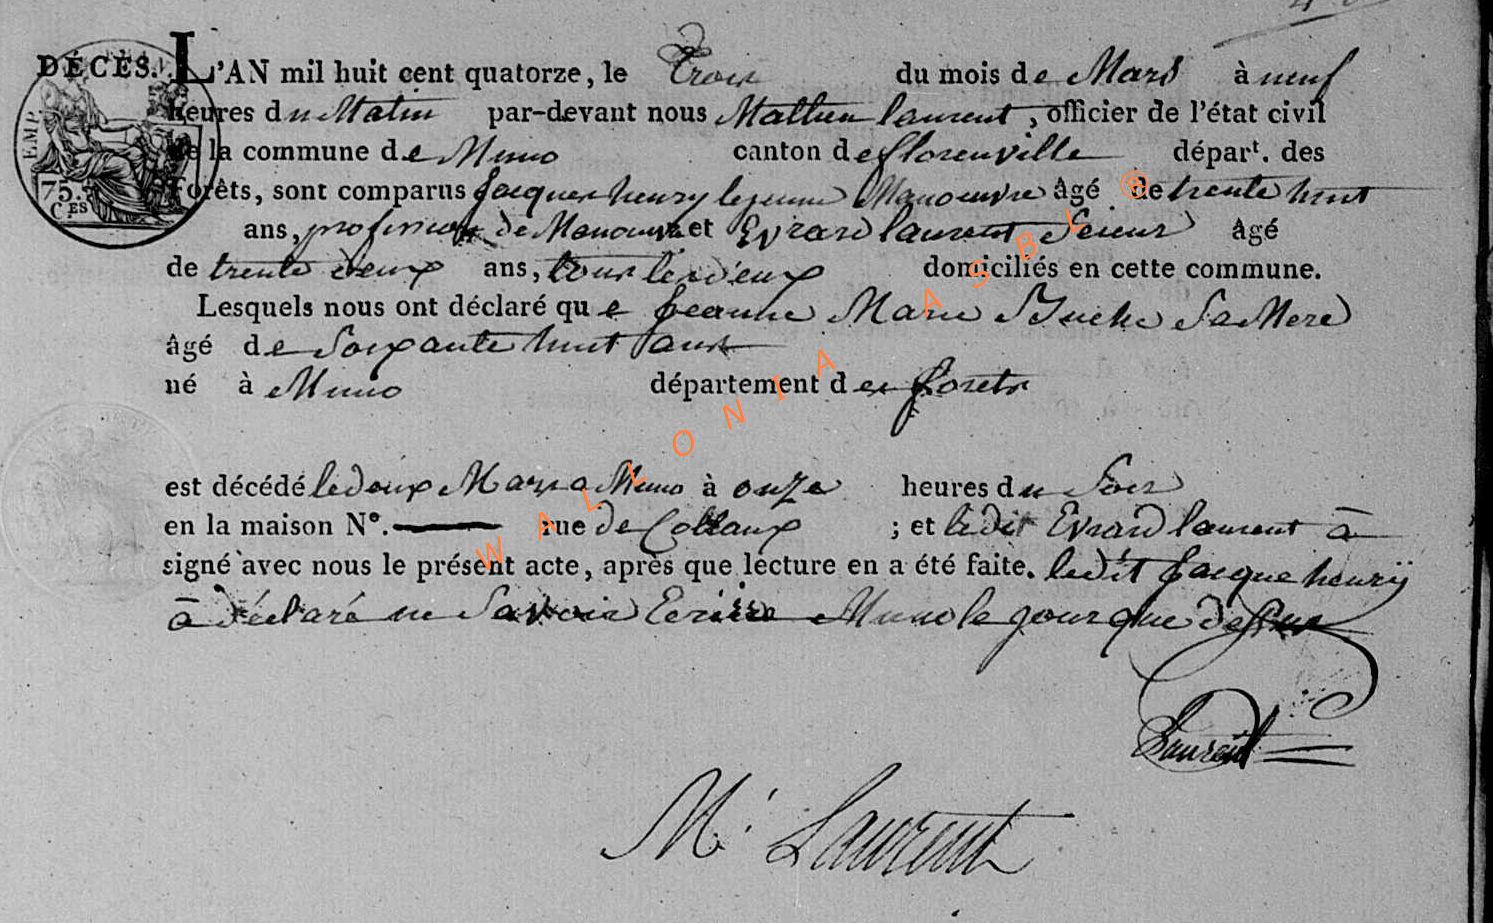 DÉCÈS. L'AN mil huit cent quatorze, le Trois du mois de Mars à neuf
heures du Matin par-devant nous Mathieu laurent, officier de l'état civil
de la commune de Muno canton de florenville dépar<sup>t</sup>. des
Forêts, sont comparus jacques henry lejeune Manoeuvre âgé de trente huit
ans, profession de Manouvre et Evrard laurent Scieur âgé
de trente deux ans, tous les deux domiciliés en cette commune.
Lesquels nous ont déclaré que jeanne Marie Sa Mere
âgé de Soixante huit ans
né à Muno département des forets
est décédé le deux Mars a Muno à onze heures du Soir
en la maison N°. rue de ; et ledit Evrard laurent à
signé avec nous le présent acte, après que lecture en a été faite. ledit jacque henry
à déclaré ne Savoir Ecrire Muno le jour que dessus
Laurent
M. Laurent
EMP.
75.
C.ES
WALLONIA ASBL ®